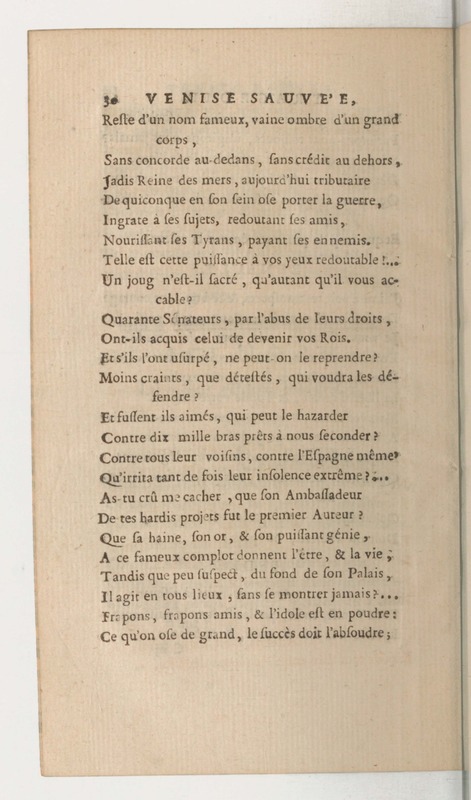 30 VENISE SAUVE'E,
Reſte d'un nom fameux, vaine ombre d'un grand
corps,
Sans concorde au-dedans, ſans crédit au dehors,
Jadis Reine des mers, aujourd'hui tributaire
De quiconque en ſon ſein oſe porter la guerre,
Ingrate à ſes ſujets, redoutant ſes amis,
Nouriſſant ſes Tyrans, payant ſes ennemis.
Telle eſt cette puiſſance à vos yeux redoutable !...
Un joug n'eſt-il ſacré, qu'autant qu'il vous ac-
cable ?
Quarante Sénateurs, par l'abus de leurs droits,
Ont-ils acquis celui de devenir vos Rois.
Et s'ils l'ont uſurpé, ne peut-on le reprendre ?
Moins craints, que déteſtés, qui voudra les dé-
fendre ?
Et fuſſent ils aimés, qui peut le hazarder
Contre dix mille bras prêts à nous ſeconder ?
Contre tous leur voiſins, contre l'Eſpagne même
Qu'irrita tant de fois leur inſolence extrême ?...
As-tu crû me cacher, que ſon Ambaſſadeur
De tes hardis projets fut le premier Auteur ?
Que ſa haine, ſon or, & ſon puiſſant génie,
A ce fameux complot donnent l'être, & la vie ;
Tandis que peu ſuſpect, du fond de ſon Palais,
Il agit en tous lieux, ſans ſe montrer jamais ?...
Frapons, frapons amis, & l'idole eſt en poudre :
Ce qu'on oſe de grand, le ſuccès doit l'abſoudre ;